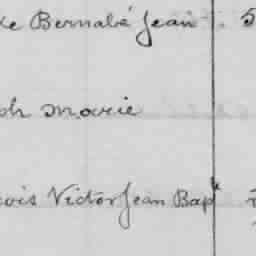 de Bernabé Jean 5
ph Marie
çois Victor Jean Bapte